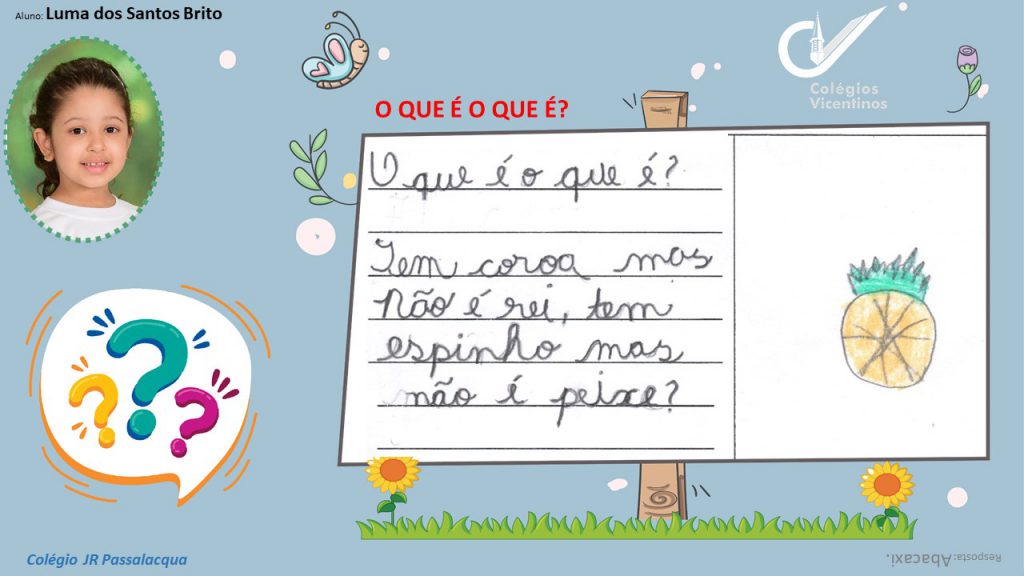 Aluno: Luma dos Santos Brito
Colégios
Vicentinos
O QUE É O QUE É?
O que é o que é?
Tem coroa mas
Não é rei, tem
espinho mas
não é peixe?
Colégio JR Passalacqua
Resposta: Abacaxi.